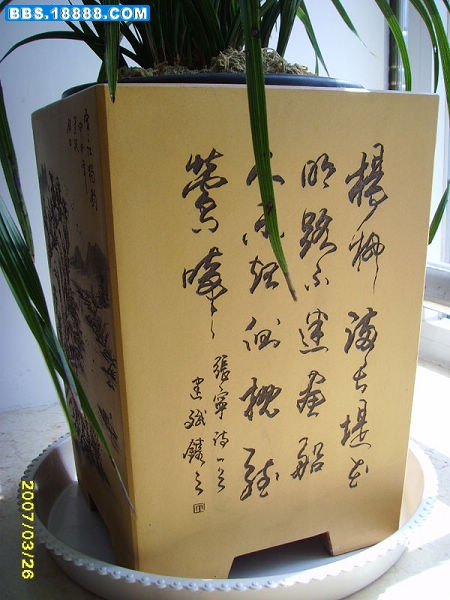 BBS.18888.COM
楊柳滿长堤花
明路不迷畫船
人未起側枕聽
鶯啼
張寧詩一首
建斌鐫之
2007/03/26